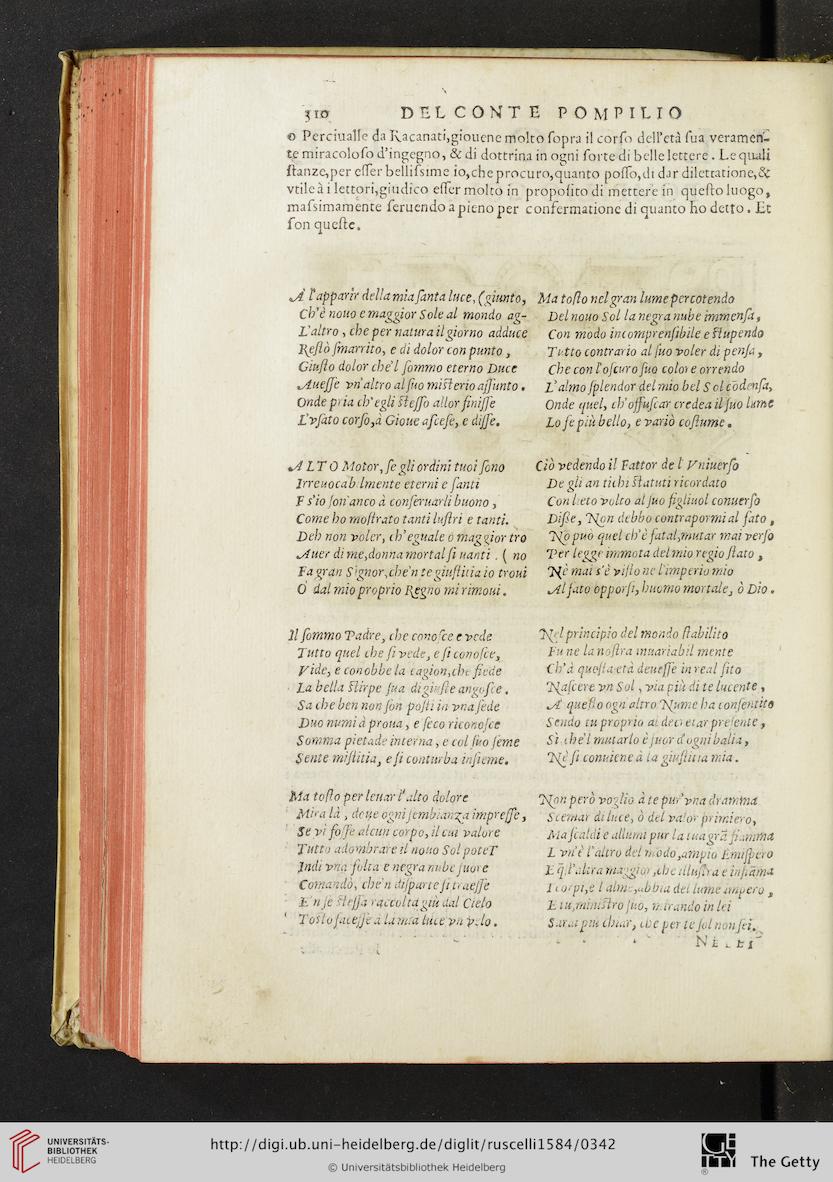 310 DEL CONTE POMPILIO
o Perciualle da Racanati,giouene molto ſopra il corſo dell'età ſua veramen-
te miracoloſo d'ingegno, & di dottrina in ogni ſorte di belle lettere. Le quali
ſtanze,per eſſer belliſsime io,che procuro,quanto poſſo,di dar dilettatione,&
vtile à i lettori,giudico eſſer molto in propoſito di mettere in queſto luogo,
maſsimamente ſeruendo a pieno per confermatione di quanto ho detto. Et
ſon queſte.
A l'apparir della mia ſanta luce, (giunto,
Ch'è nouo e maggior Sole al mondo ag-
L'altro, che per natura il giorno adduce
Reſtò ſmarrito, e di dolor con punto,
Giuſto dolor che'l ſommo eterno Duce
Aueſſe vn'altro al ſuo miſterio aſſunto.
Onde pria ch'egli ſteſſo allor finiſſe
L'vſato corſo,à Gioue aſceſe, e diſſe.
ALTO Motor, ſe gli ordini tuoi ſono
Irreuocab lmente eterni e ſanti
E s'io ſon'anco à conſeruarli buono,
Come ho moſtrato tanti luſtri e tanti.
Deh non voler, ch'eguale o maggior tro
Auer di me,donna mortal ſi uanti. ( no
Fa gran Signor,che'n te giuſtitia io troui
O dal mio proprio Regno mi rimoui.
Il ſommo Padre, che conoſce e vede
Tutto quel che ſi vede, e ſi conoſce,
Vide, e conobbe la cagion,che fiede
La bella ſtirpe ſua di giuſte angoſce.
Sa che ben non ſon poſti in vna ſede
Duo numi à proua, e ſeco riconoſce
Somma pietade interna, e col ſuo ſeme
Sente miſtitia, e ſi conturba inſieme.
Ma toſto per leuar l'alto dolore
Mira là, doue ogni ſembianza impreſſe,
Se vi foſſe alcun corpo, il cui valore
Tutto adombrare il nouo Sol poteſ
Indi vna folta e negra nube fuore
Comandò, che'n diſparte ſi traeſſe
E'n ſe ſteſſa raccolta giù dal Cielo
Toſto faceſſe à la mia luce vn velo.
Ma toſto nel gran lume percotendo
Del nouo Sol la negra nube immenſa,
Con modo incomprenſibile e ſtupendo
Tutto contrario al ſuo voler di penſa,
Che con l'oſcuro ſuo colore orrendo
L'almo ſplendor del mio bel Sol cōdenſa,
Onde quel, ch'offuſcar credea il ſuo lume
Lo fe più bello, e variò coſtume.
Ciò vedendo il Fattor de l' Vniuerſo
De gli an tichi ſtatuti ricordato
Con lieto volto al ſuo figliuol conuerſo
Diſſe, Non debbo contrapormi al fato,
Nō può quel ch'è fatal,mutar mai verſo
Per legge immota del mio regio ſtato,
Nè mai s'è viſto ne l'imperio mio
Al fato opporſi, huomo mortale, ò Dio.
Nel principio del mondo ſtabilito
Fu ne la noſtra inuariabil mente
Ch'à queſta età deueſſe in real ſito
Naſcere vn Sol, via più di te lucente,
A' queſto ogn altro Nume ha conſentito
Sendo tu proprio al decretar preſente,
Sì che'l mutarlo è fuor d'ogni balia,
Nè ſi conuiene à la giuſtitia mia.
Non però voglio à te pur'vna dramma
Scemar di luce, ò del valor primiero,
Ma ſcaldi e allumi pur la tua grā fiamma
L'vn'è l'altro del modo,ampio Emiſpero
E q̄l'altra maggior,che illuſtra e infiāma
I corpi,e l'alme,abbia del lume impero,
E tu,miniſtro ſuo, mirando in lei
Sarai più chiar, che per te ſol non ſei.
http://digi.ub.uni-heidelberg.de/diglit/ruscelli1584/0342
© Universitätsbibliothek Heidelberg
UNIVERSITÄTS-
BIBLIOTHEK
HEIDELBERG
The Getty